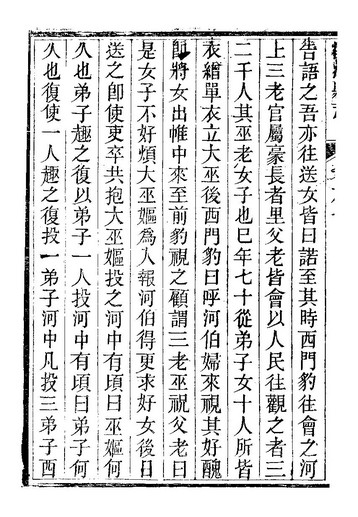 告語之吾亦往送女皆曰諾至其時西門豹往會之河
上三老官屬豪長者里父老皆會以人民往觀之者三
二千人其巫老女子也巳年七十從弟子女十人所皆
衣繒單衣立大巫後西門豹曰呼河伯婦來視其好醜
即將女出帷中來至前豹視之顧謂三老巫祝父老曰
是女子不好煩大巫嫗為人報河伯得更求好女後日
送之即使吏卒共抱大巫嫗投之河中有頃曰巫嫗何
久也弟子趣之復以弟子一人投河中有頃曰弟子何
久也復使一人趣之復投一弟子河中凡投三弟子西